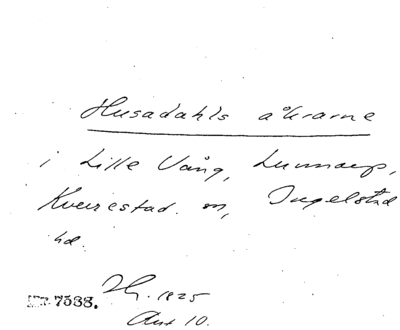 Husadahls åkrarne
i Lille Vång, Lunnarp,
Kverrestad. sn, Ingelstad
hd.
7588. 1825
Akt 10.